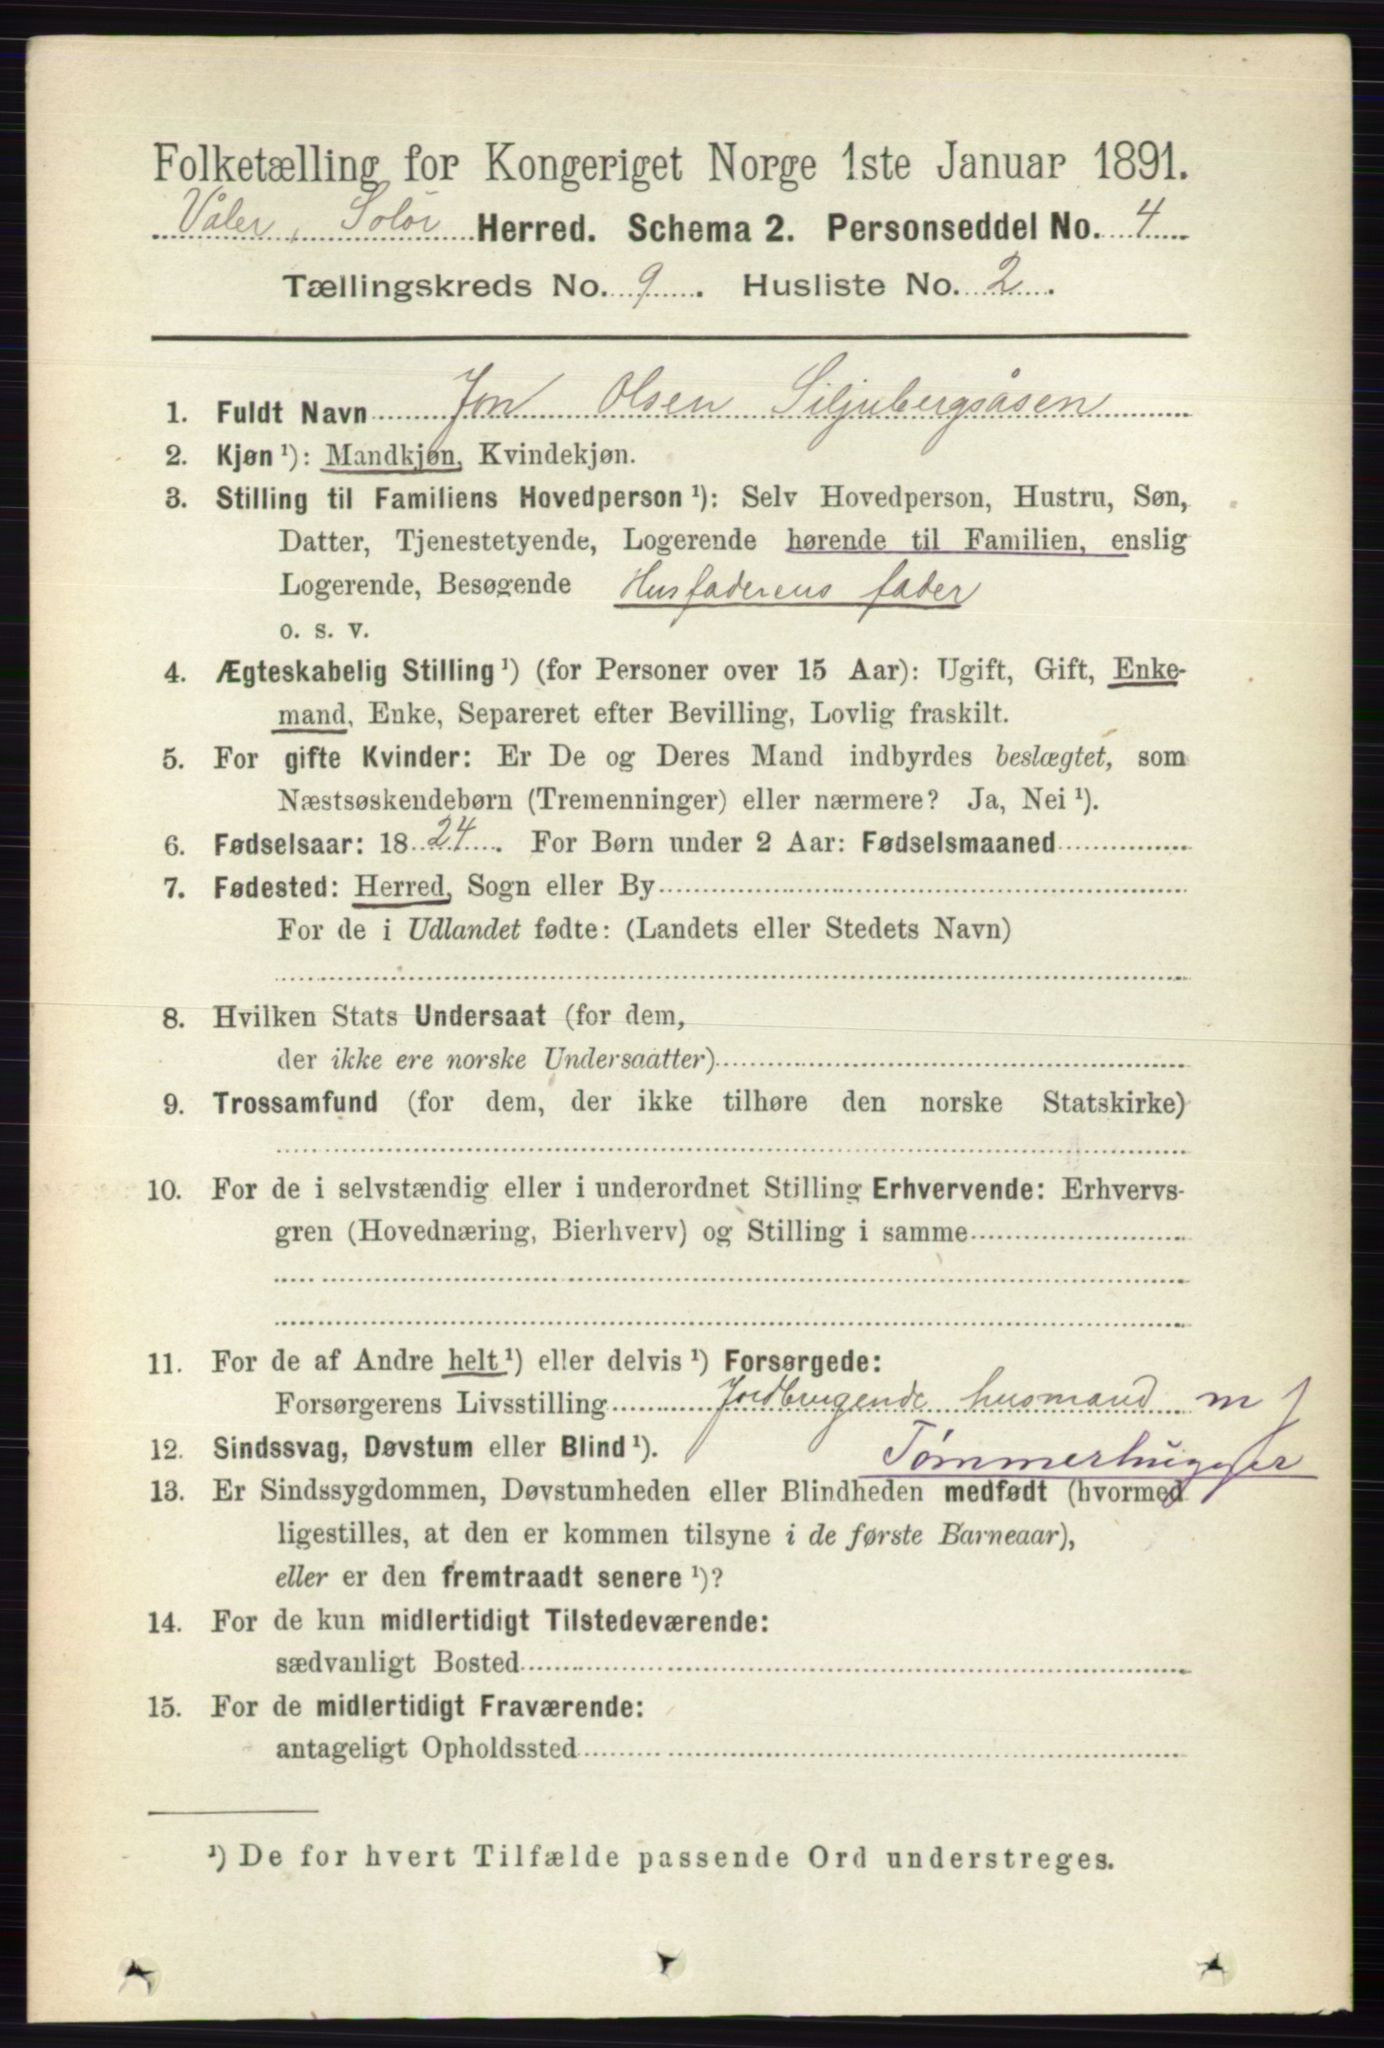 Folketælling for Kongeriget Norge 1ste Januar 1891.
Våler, Solør Herred. Schema 2. Personseddel No. 4
Tællingskreds No. 9. Husliste No. 2.
1. Fuldt Navn Jon Olsen Siljubergsåsen
2. Kjøn ¹): Mandkjøn, Kvindekjøn.
3. Stilling til Familiens Hovedperson ¹): Selv Hovedperson, Hustru, Søn,
Datter, Tjenestetyende, Logerende hørende til Familien, enslig
Logerende, Besøgende Husfaderens fader
o. s. v.
4. Ægteskabelig Stilling ¹) (for Personer over 15 Aar): Ugift, Gift, Enke-
mand, Enke, Separeret efter Bevilling, Lovlig fraskilt.
5. For gifte Kvinder: Er De og Deres Mand indbyrdes beslægtet, som
Næstsøskendebørn (Tremenninger) eller nærmere? Ja, Nei ¹).
6. Fødselsaar: 1824. For Børn under 2 Aar: Fødselsmaaned
7. Fødested: Herred, Sogn eller By
For de i Udlandet fødte: (Landets eller Stedets Navn)
8. Hvilken Stats Undersaat (for dem,
der ikke ere norske Undersaatter)
9. Trossamfund (for dem, der ikke tilhøre den norske Statskirke)
10. For de i selvstændig eller i underordnet Stilling Erhvervende: Erhvervs-
gren (Hovednæring, Bierhverv) og Stilling i samme
11. For de af Andre helt ¹) eller delvis ¹) Forsørgede:
Forsørgerens Livsstilling Jordbrugende husmand m J
12. Sindssvag, Døvstum eller Blind ¹). Tømmerhugger
13. Er Sindssygdommen, Døvstumheden eller Blindheden medfødt (hvormed
ligestilles, at den er kommen tilsyne i de første Barneaar),
eller er den fremtraadt senere ¹)?
14. For de kun midlertidigt Tilstedeværende:
sædvanligt Bosted
15. For de midlertidigt Fraværende:
antageligt Opholdssted
¹) De for hvert Tilfælde passende Ord understreges.